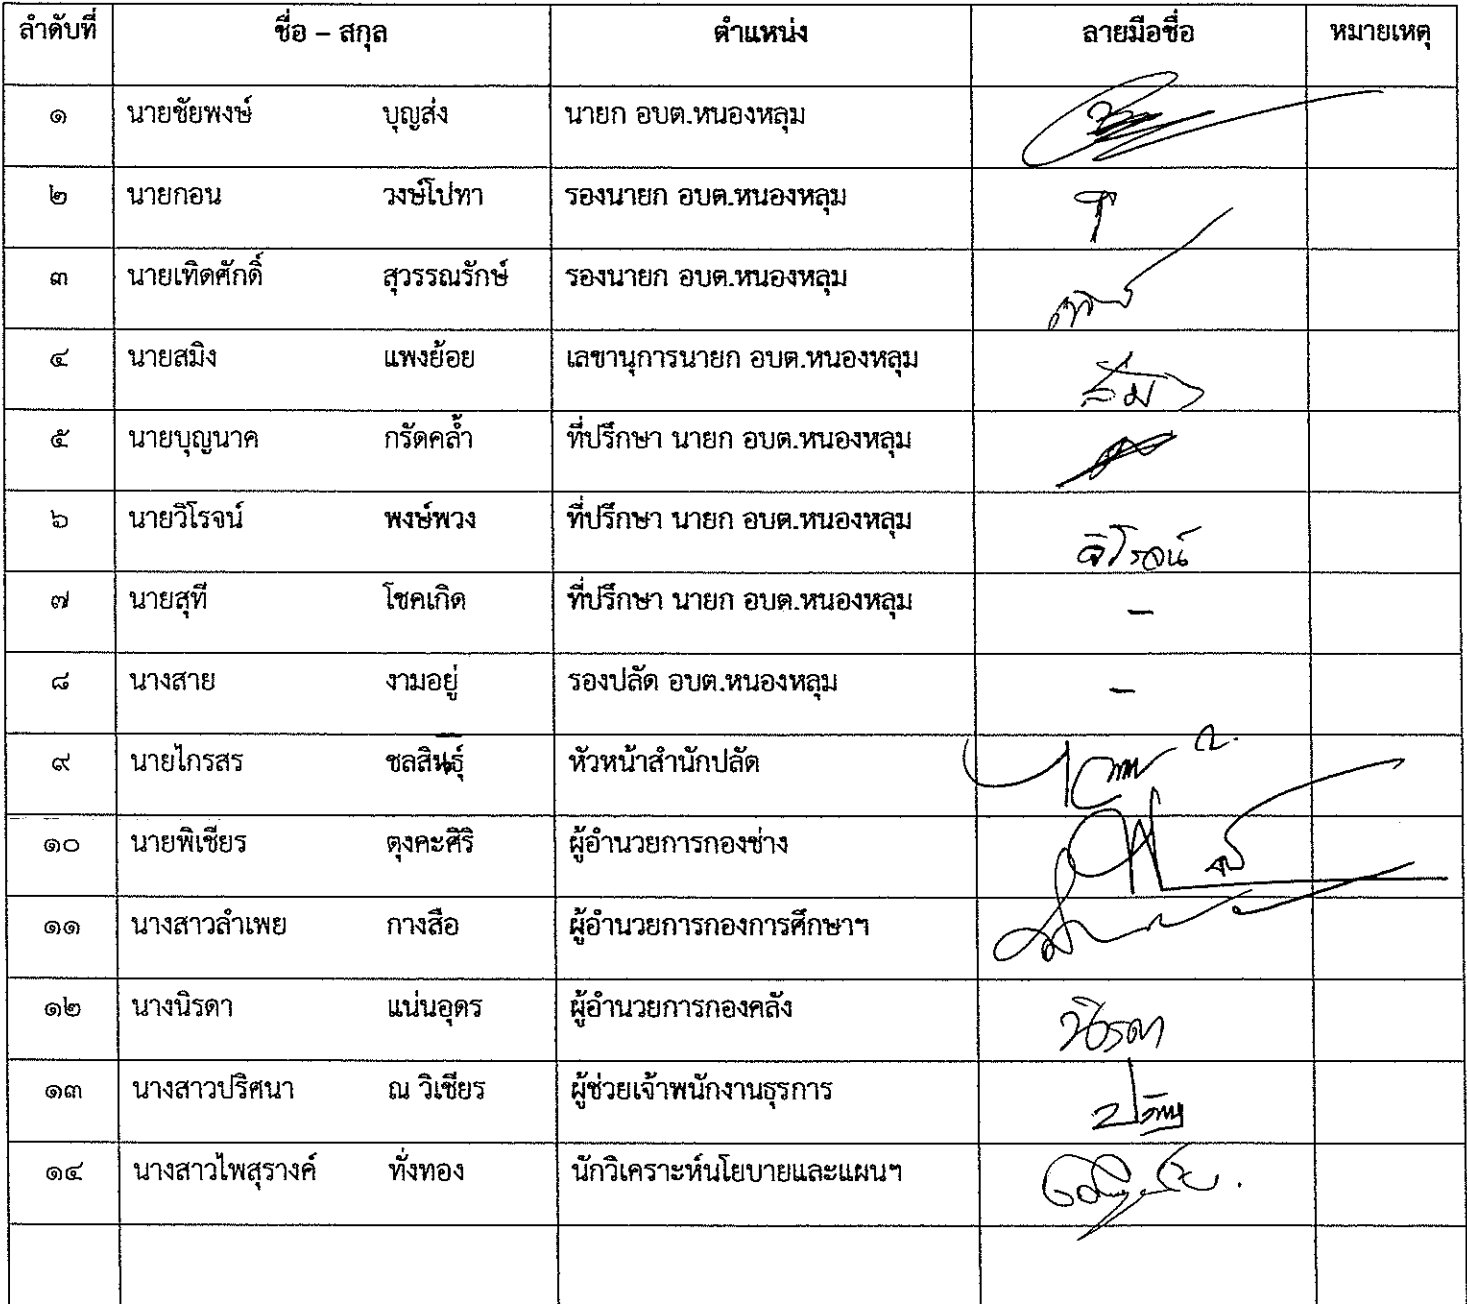 ลำดับที่ ชื่อ – สกุล ตำแหน่ง ลายมือชื่อ หมายเหตุ
๑ นายชัยพงษ์ บุญส่ง นายก อบต.หนองหลุม
๒ นายกอน วงษ์โปทา รองนายก อบต.หนองหลุม
๓ นายเทิดศักดิ์ สุวรรณรักษ์ รองนายก อบต.หนองหลุม
๔ นายสมิง แพงย้อย เลขานุการนายก อบต.หนองหลุม
๕ นายบุญนาค กรัดคล้ำ ที่ปรึกษา นายก อบต.หนองหลุม
๖ นายวิโรจน์ พงษ์พวง ที่ปรึกษา นายก อบต.หนองหลุม วิโรจน์
๗ นายสุที โชคเกิด ที่ปรึกษา นายก อบต.หนองหลุม –
๘ นางสาย งามอยู่ รองปลัด อบต.หนองหลุม –
๙ นายไกรสร ชลสินธุ์ หัวหน้าสำนักปลัด
๑๐ นายพิเชียร ตุงคะศิริ ผู้อำนวยการกองช่าง
๑๑ นางสาวลำเพย กางสือ ผู้อำนวยการกองการศึกษาฯ
๑๒ นางนิรดา แน่นอุดร ผู้อำนวยการกองคลัง นิรดา
๑๓ นางสาวปริศนา ณ วิเชียร ผู้ช่วยเจ้าพนักงานธุรการ
๑๔ นางสาวไพสุรางค์ ทั่งทอง นักวิเคราะห์นโยบายและแผนฯ